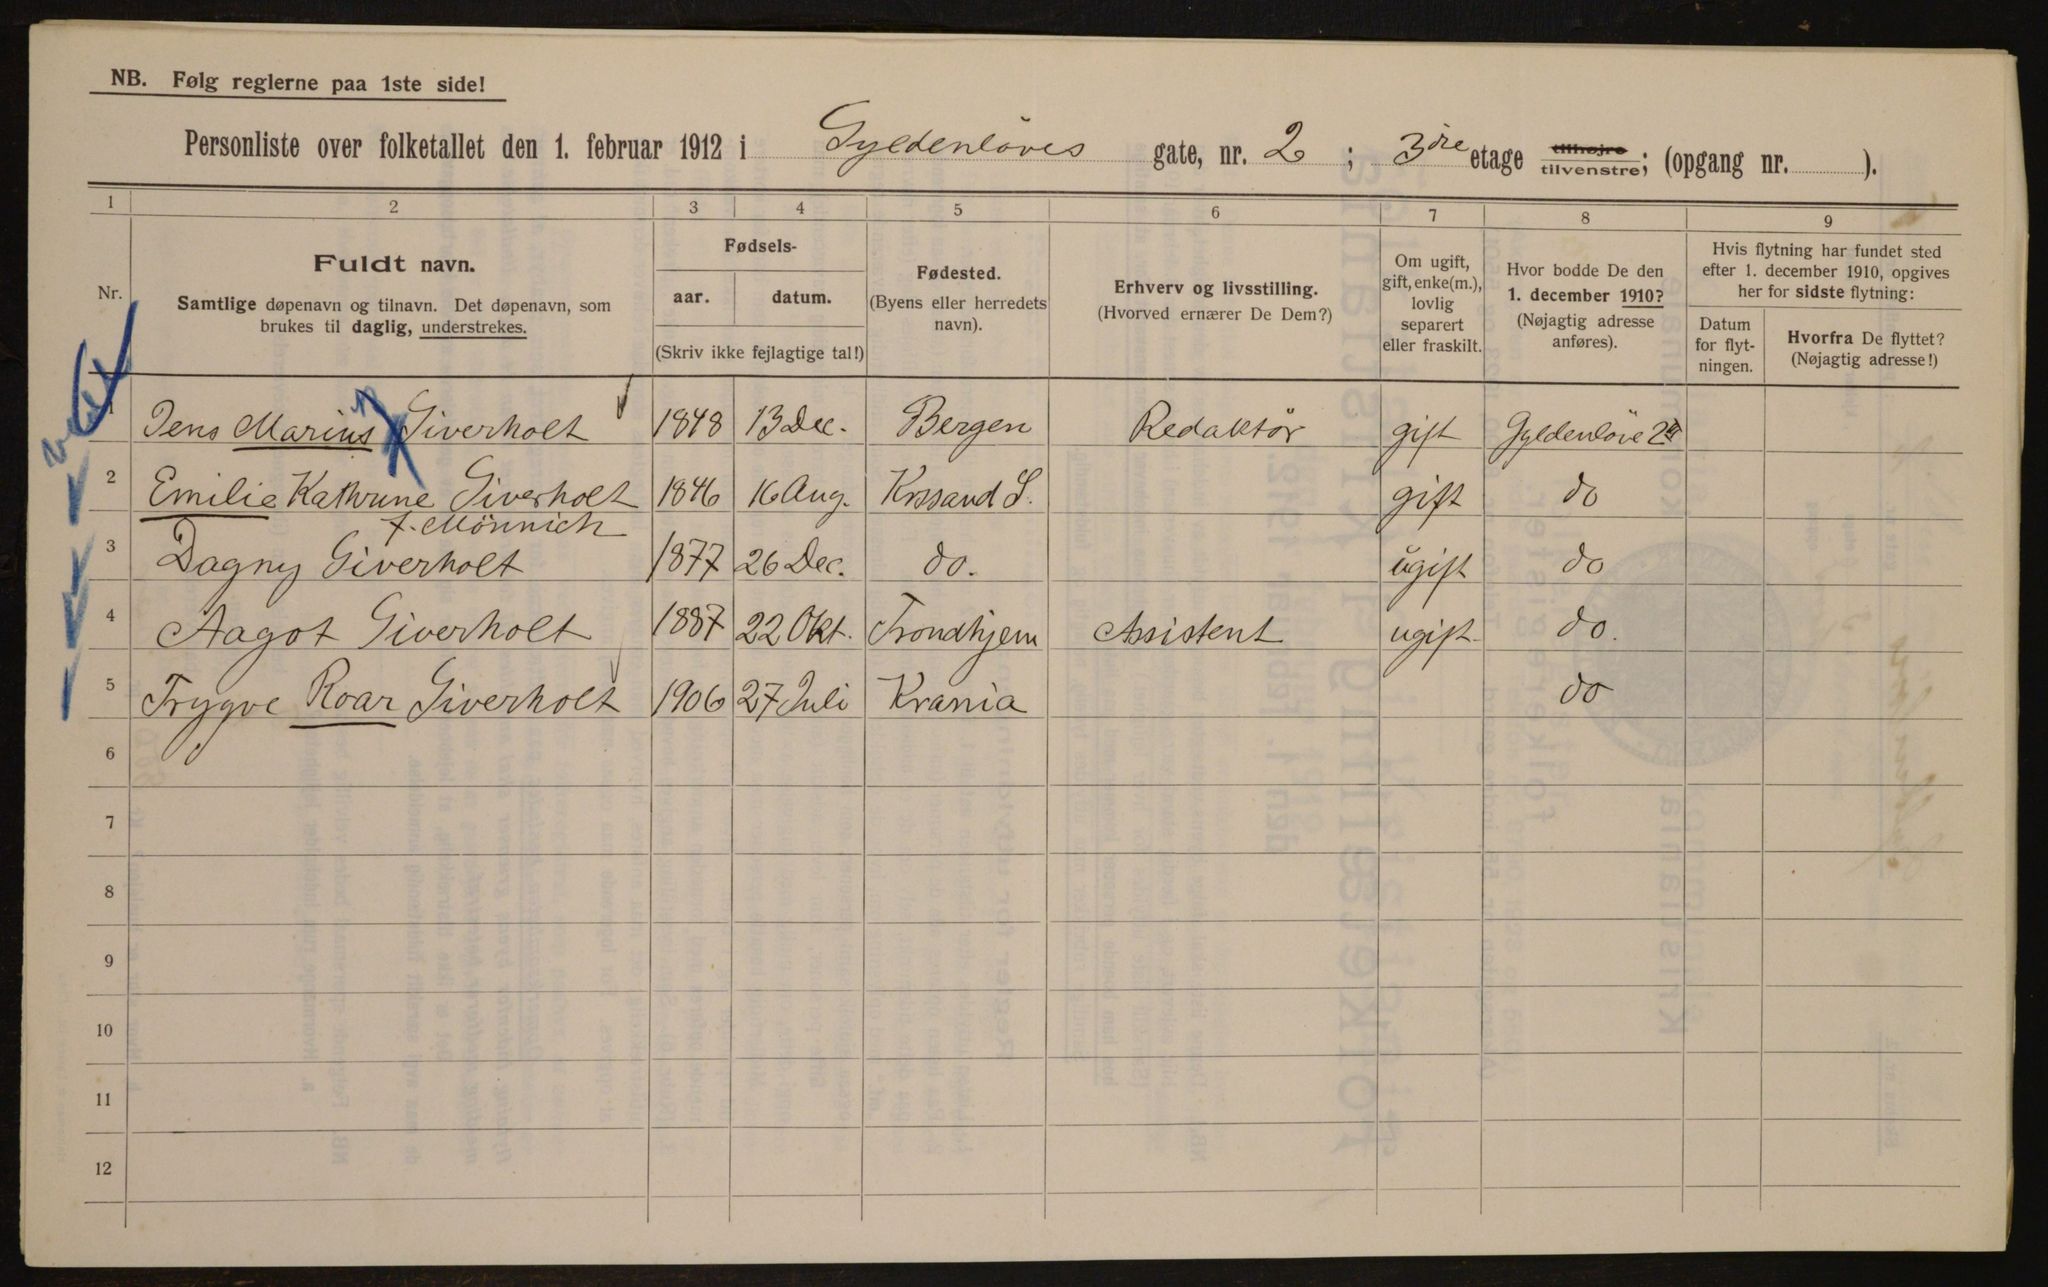 NB. Følg reglerne paa 1ste side!
Personliste over folketallet den 1. februar 1912 i Gyldenløves gate, nr. 2 ; 3dre etage tilhøjre tilvenstre; (opgang nr. ).
1 2 3 4 5 6 7 8 9
Nr.
Fuldt navn.
Samtlige døpenavn og tilnavn. Det døpenavn, som
brukes til daglig, understrekes.
Fødsels-
aar. datum.
(Skriv ikke fejlagtige tal!)
Fødested.
(Byens eller herredets
navn).
Erhverv og livsstilling.
(Hvorved ernærer De Dem?)
Om ugift,
gift, enke(m.),
lovlig
separert
eller fraskilt.
Hvor bodde De den
1. december 1910?
(Nøjagtig adresse
anføres).
Hvis flytning har fundet sted
efter 1. december 1910, opgives
her for sidste flytning:
Datum
for flyt-
ningen.
Hvorfra De flyttet?
(Nøjagtig adresse!)
1 Jens Marius Giverholt 1848 13 Dec. Bergen Redaktör gift Gyldenlöve 2
2 Emilie Kathrine Giverholt 1846 16 Aug. Krssand S. gift do
f. Mönnich
3 Dagny Giverholt 1877 26 Dec. do. ugift do
4 Aagot Giverholt 1887 22 Okt. Trondhjem Assistent ugift. do.
5 Trygve Roar Giverholt 1906 27 Juli Krania do
6
7
8
9
10
11
12